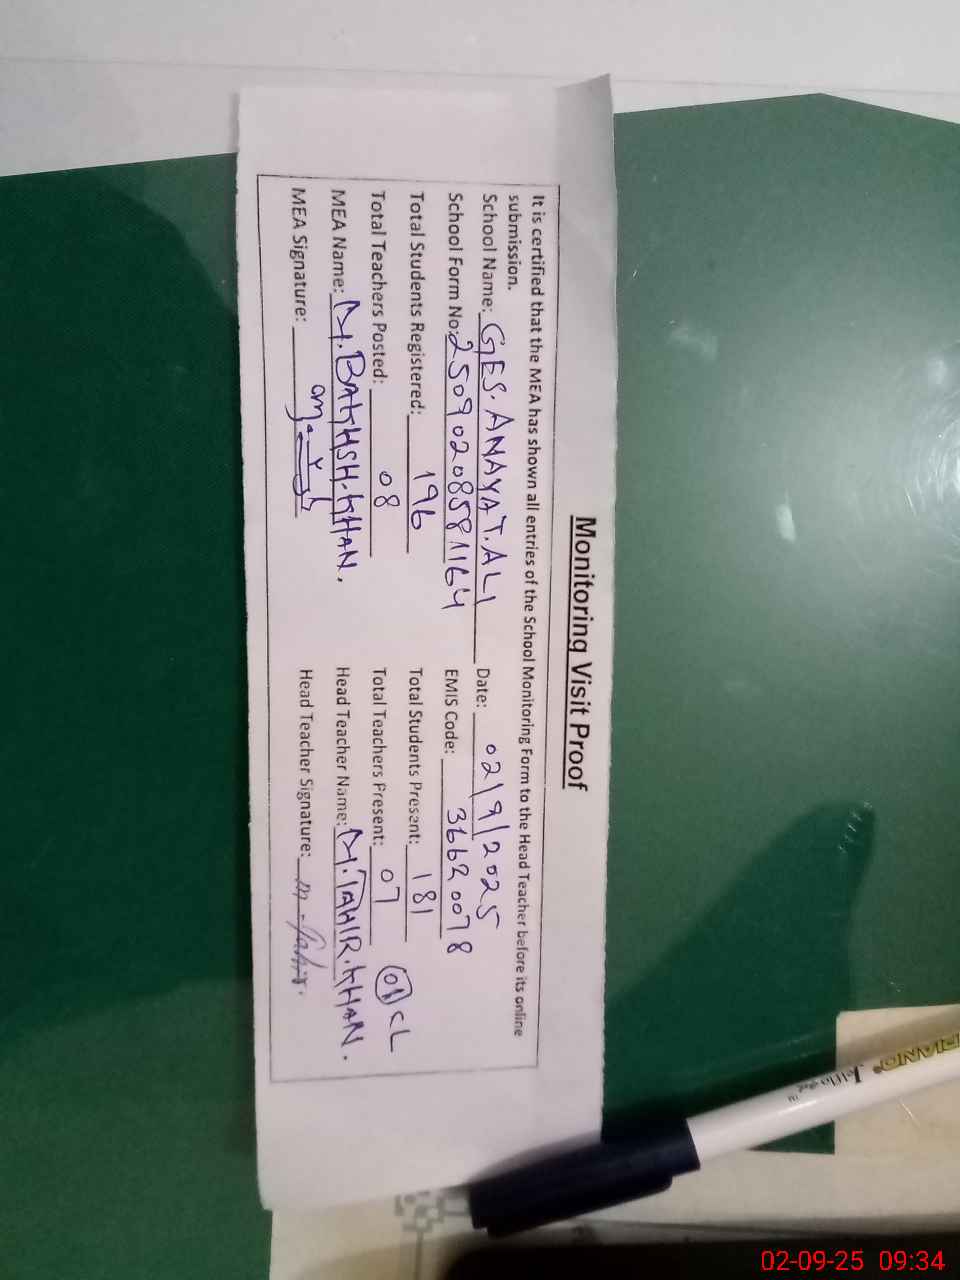 Monitoring Visit Proof
It is certified that the MEA has shown all entries of the School Monitoring Form to the Head Teacher before its online
submission.
School Name: GES. ANAYAT. ALI Date: 02/9/2025
School Form No: 25090208581164 EMIS Code: 36620078
Total Students Registered: 196 Total Students Present: 181
Total Teachers Posted: 08 Total Teachers Present: 07 01 CL
MEA Name: M. BAKHSH. KHAN. Head Teacher Name: M. TAHIR. KHAN.
MEA Signature: Head Teacher Signature: M. Tahir.
PIANO
02-09-25 09:34